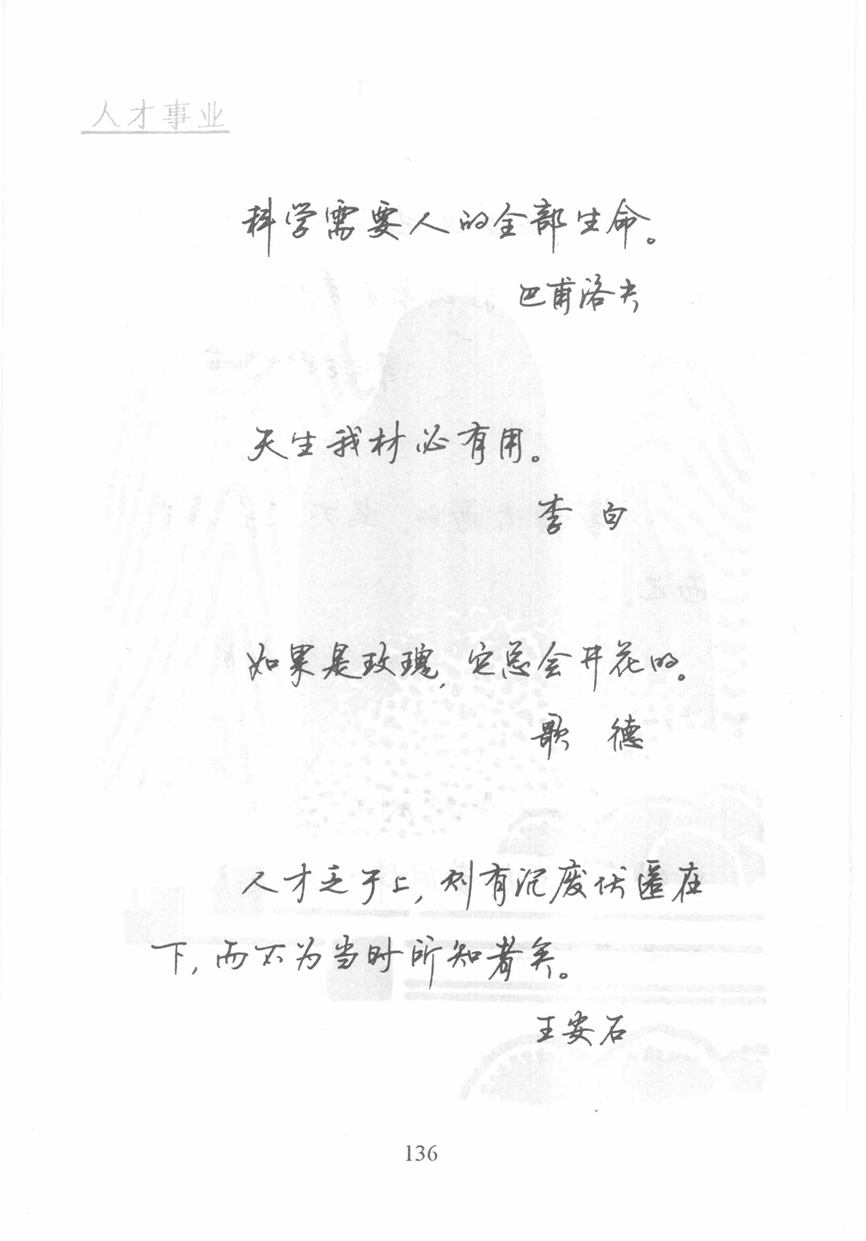 人才事业
科学需要人的全部生命。
巴甫洛夫
天生我材必有用。
李 白
如果是玫瑰,它总会开花的。
歌 德
人才乏于上,则有沉废伏匿在
下,而不为当时所知者矣。
王安石
136